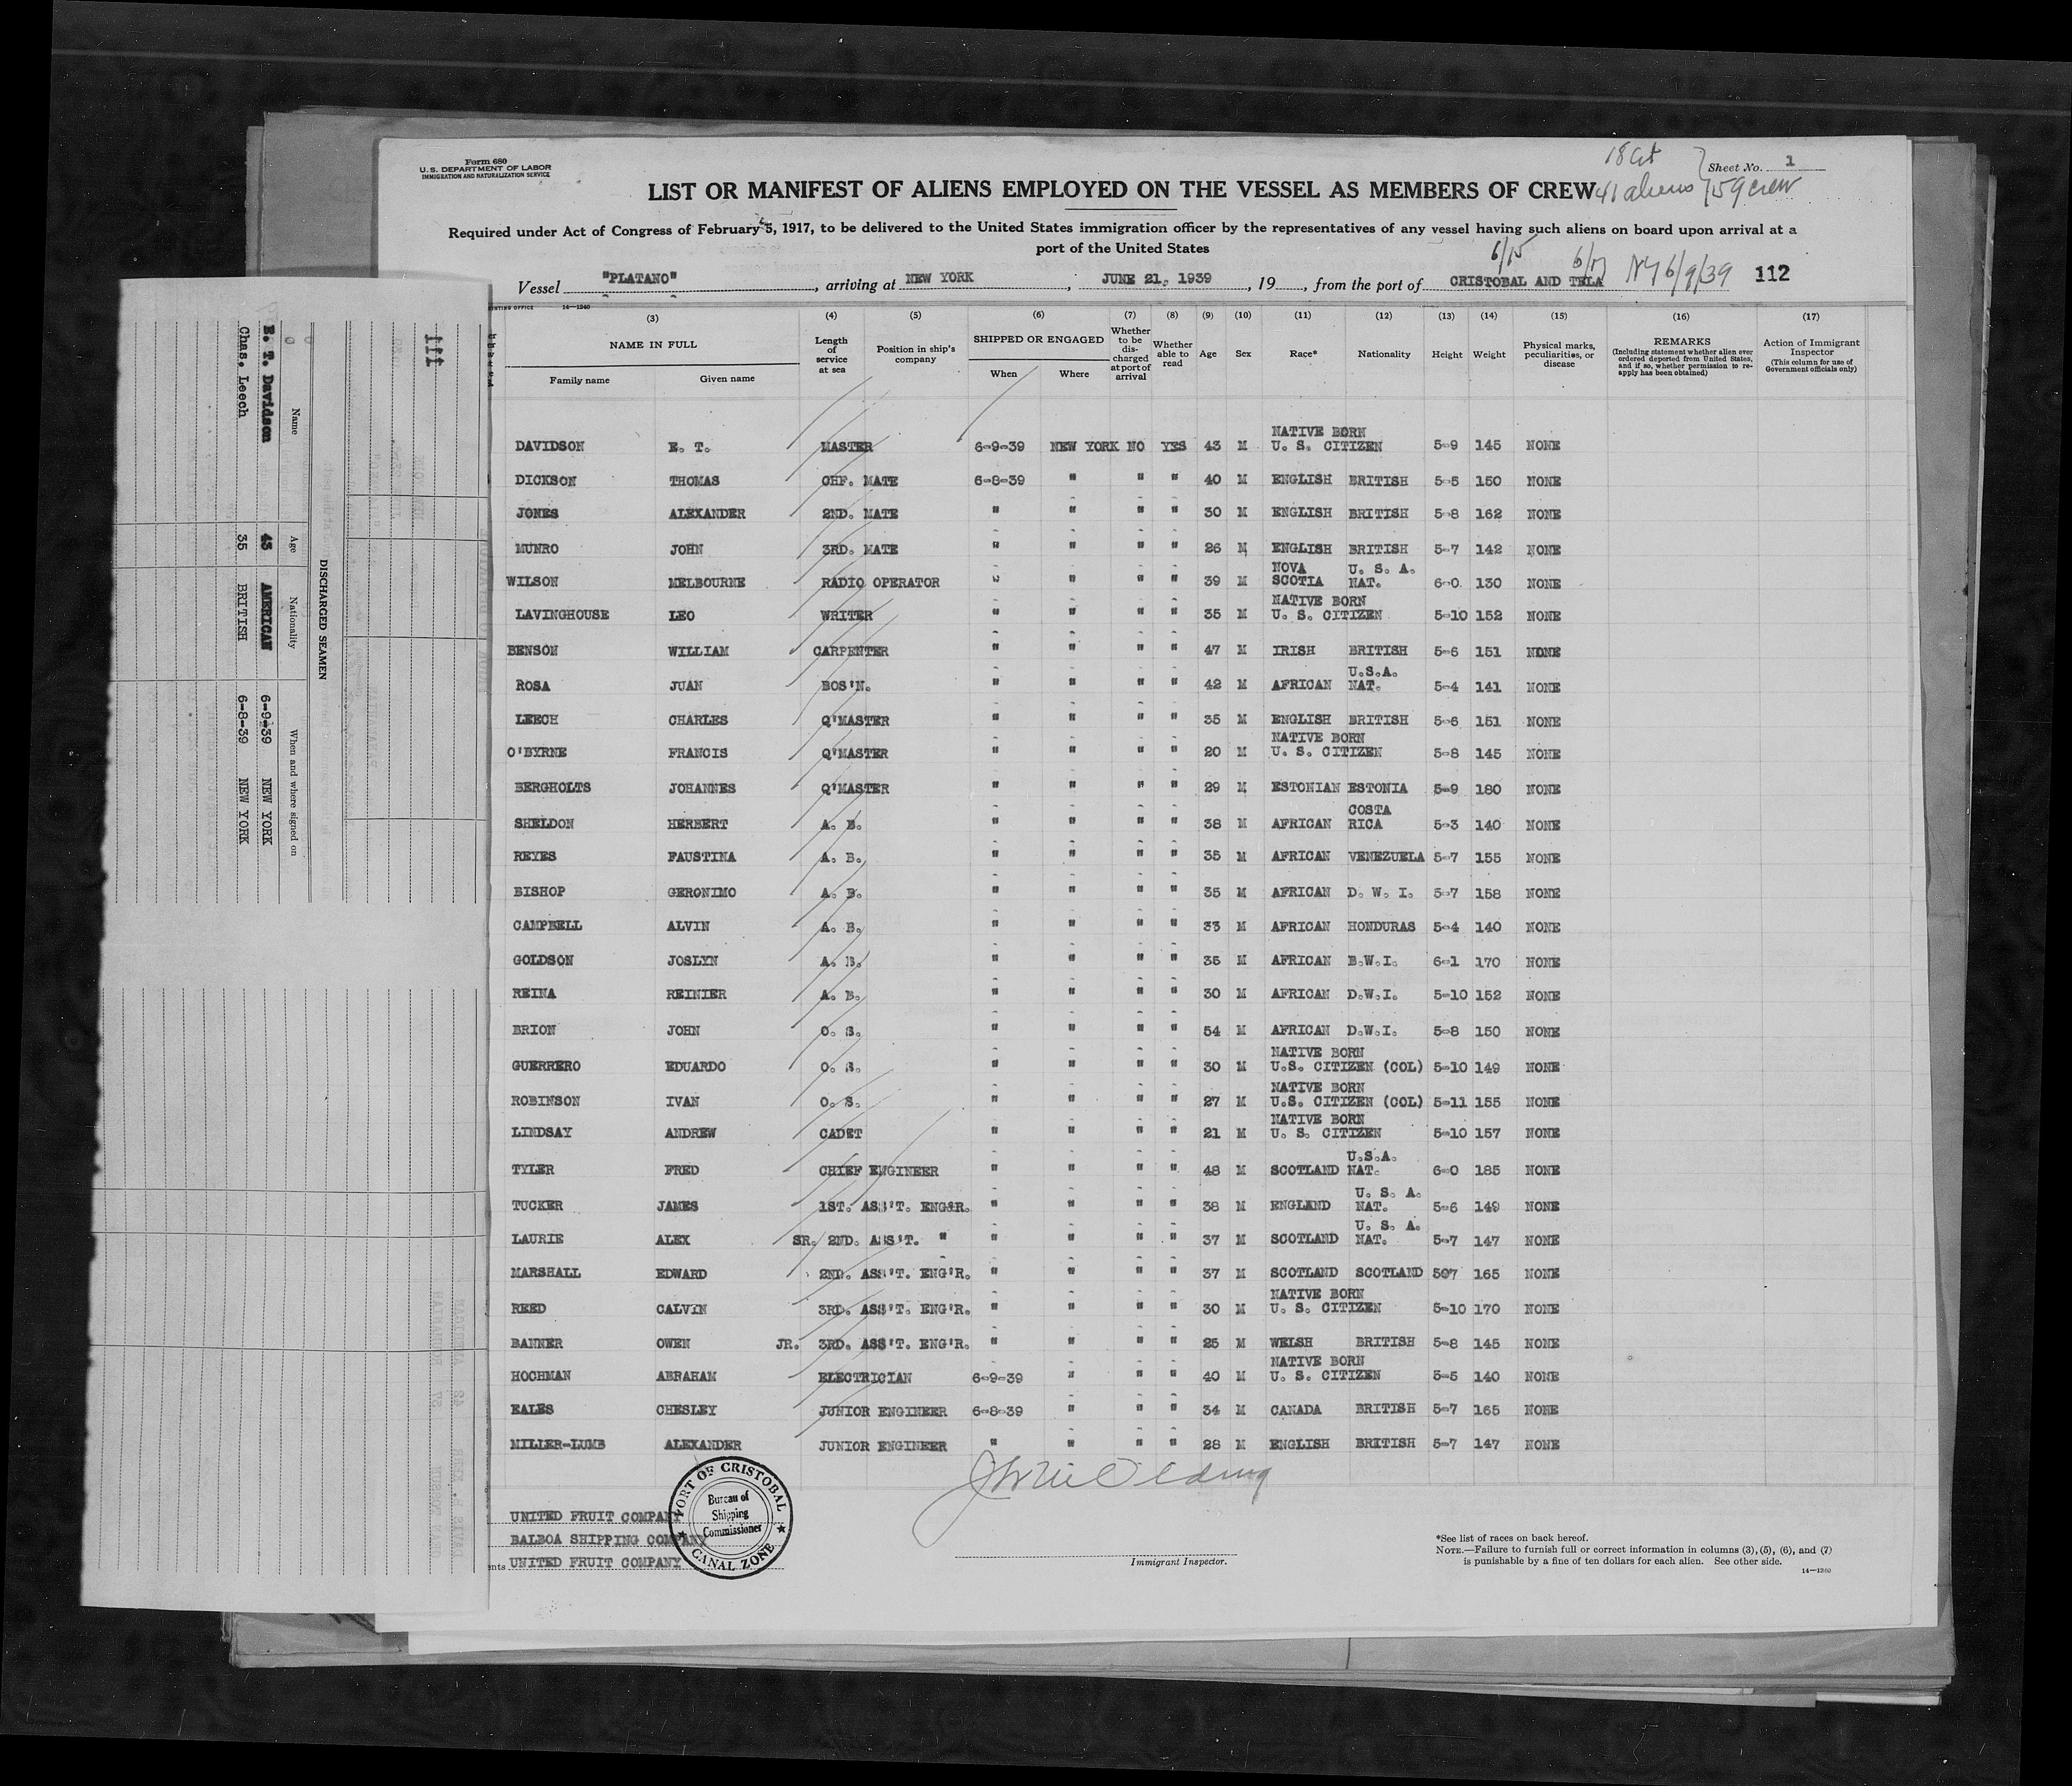 Form 680
U. S. DEPARTMENT OF LABOR
IMMIGRATION AND NATURALIZATION SERVICE
Sheet No. 1
18 Cit
41 aliens } 59 crew
LIST OR MANIFEST OF ALIENS EMPLOYED ON THE VESSEL AS MEMBERS OF CREW
Required under Act of Congress of February 5, 1917, to be delivered to the United States immigration officer by the representatives of any vessel having such aliens on board upon arrival at a
port of the United States
6/15
Vessel "PLATANO", arriving at NEW YORK, JUNE 21, 1939, 19, from the port of CRISTOBAL AND TELA NY 6/9/39 112
14—1240
(3) (4) (5) (6) (7) (8) (9) (10) (11) (12) (13) (14) (15) (16) (17)
NAME IN FULL Family name Given name
Length of service at sea
Position in ship's company
SHIPPED OR ENGAGED When Where
Whether to be discharged at port of arrival
Whether able to read
Age Sex Race* Nationality Height Weight
Physical marks, peculiarities, or disease
REMARKS
(Including statement whether alien ever ordered deported from United States, and if so, whether permission to reapply has been obtained)
Action of Immigrant Inspector
(This column for use of Government officials only)
NATIVE BORN
DAVIDSON E. T. MASTER 6-9-39 NEW YORK NO YES 43 M U. S. CITIZEN 5-9 145 NONE
DICKSON THOMAS CHF. MATE 6-8-39 " " " 40 M ENGLISH BRITISH 5-5 150 NONE
JONES ALEXANDER 2ND. MATE " " " " 30 M ENGLISH BRITISH 5-8 162 NONE
MUNRO JOHN 3RD. MATE " " " " 26 M ENGLISH BRITISH 5-7 142 NONE
NOVA U. S. A.
WILSON MELBOURNE RADIO OPERATOR " " " " 39 M SCOTIA NAT. 6-0 130 NONE
NATIVE BORN
LAVINGHOUSE LEO WRITER " " " " 35 M U. S. CITIZEN 5-10 152 NONE
BENSON WILLIAM CARPENTER " " " " 47 M IRISH BRITISH 5-6 151 NONE
U.S.A.
ROSA JUAN BOS'N. " " " " 42 M AFRICAN NAT. 5-4 141 NONE
LEECH CHARLES Q'MASTER " " " " 35 M ENGLISH BRITISH 5-6 151 NONE
NATIVE BORN
O'BYRNE FRANCIS Q'MASTER " " " " 20 M U. S. CITIZEN 5-8 145 NONE
BERGHOLTS JOHANNES Q'MASTER " " " " 29 M ESTONIAN ESTONIA 5-9 180 NONE
COSTA
SHELDON HERBERT A. B. " " " " 38 M AFRICAN RICA 5-3 140 NONE
REYES FAUSTINA A. B. " " " " 35 M AFRICAN VENEZUELA 5-7 155 NONE
BISHOP GERONIMO A. B. " " " " 35 M AFRICAN D. W. I. 5-7 158 NONE
CAMPBELL ALVIN A. B. " " " " 33 M AFRICAN HONDURAS 5-4 140 NONE
GOLDSON JOSLYN A. B. " " " " 35 M AFRICAN B.W.I. 6-1 170 NONE
REINA REINIER A. B. " " " " 30 M AFRICAN D.W.I. 5-10 152 NONE
BRION JOHN O. S. " " " " 54 M AFRICAN D.W.I. 5-8 150 NONE
NATIVE BORN
GUERRERO EDUARDO O. S. " " " " 30 M U.S. CITIZEN (COL) 5-10 149 NONE
NATIVE BORN
ROBINSON IVAN O. S. " " " " 27 M U.S. CITIZEN (COL) 5-11 155 NONE
NATIVE BORN
LINDSAY ANDREW CADET " " " " 21 M U. S. CITIZEN 5-10 157 NONE
U.S.A.
TYLER FRED CHIEF ENGINEER " " " " 48 M SCOTLAND NAT. 6-0 185 NONE
U. S. A.
TUCKER JAMES 1ST. ASS'T. ENG'R. " " " " 38 M ENGLAND NAT. 5-6 149 NONE
U. S. A.
LAURIE ALEX SR. 2ND. ASS'T. " " " " " 37 M SCOTLAND NAT. 5-7 147 NONE
MARSHALL EDWARD 2ND. ASS'T. ENG'R. " " " " 37 M SCOTLAND SCOTLAND 507 165 NONE
NATIVE BORN
REED CALVIN 3RD. ASS'T. ENG'R. " " " " 30 M U. S. CITIZEN 5-10 170 NONE
BANNER OWEN JR. 3RD. ASS'T. ENG'R. " " " " 25 M WELSH BRITISH 5-8 145 NONE
NATIVE BORN
HOCHMAN ABRAHAM ELECTRICIAN 6-9-39 " " " 40 M U. S. CITIZEN 5-5 140 NONE
EALES CHESLEY JUNIOR ENGINEER 6-8-39 " " " 34 M CANADA BRITISH 5-7 165 NONE
MILLER-LUMB ALEXANDER JUNIOR ENGINEER " " " " 28 M ENGLISH BRITISH 5-7 147 NONE
UNITED FRUIT COMPANY
BALBOA SHIPPING COMPANY
UNITED FRUIT COMPANY
PORT OF CRISTOBAL
Bureau of
Shipping
Commissioner
CANAL ZONE
Immigrant Inspector.
*See list of races on back hereof.
NOTE.—Failure to furnish full or correct information in columns (3), (5), (6), and (7)
is punishable by a fine of ten dollars for each alien. See other side.
14—1240
111
DISCHARGED SEAMEN
Name Age Nationality When and where signed on
E. T. Davidson 43 AMERICAN 6-9-39 NEW YORK
Chas. Leech 35 BRITISH 6-8-39 NEW YORK